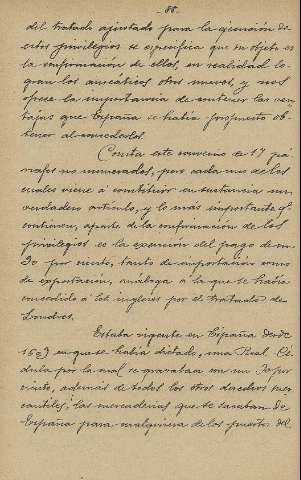 -88.-
del tratado ajustado para la ejecución de
estos privilegios se especifica que su objeto es
la confirmación de ellos, en realidad lo-
gran los anseáticos otros nuevos, y nos
ofrece la importancia de contener las ven-
tajas que España se había propuesto ob-
tener al concederlos.
Consta este convenio de 17 pá-
rrafos no numerados, pero cada uno de los
cuales viene á constituir en sustancia un
verdadero artículo, y lo más importante q.
contienen, aparte de la confirmación de los
privilegios es la exención del pago de un
30 por ciento, tanto de importación como
de exportación, análoga á la que se había
concedido á los ingleses por el tratado de
Londres.
Estaba vigente en España desde
1603 en que se había dictado, una Real Cé-
dula por la cual se gravaban en un 30 por
ciento, además de todos los otros derechos mer-
cantiles, las mercaderías que se sacaban de
España para cualquiera de los puertos del